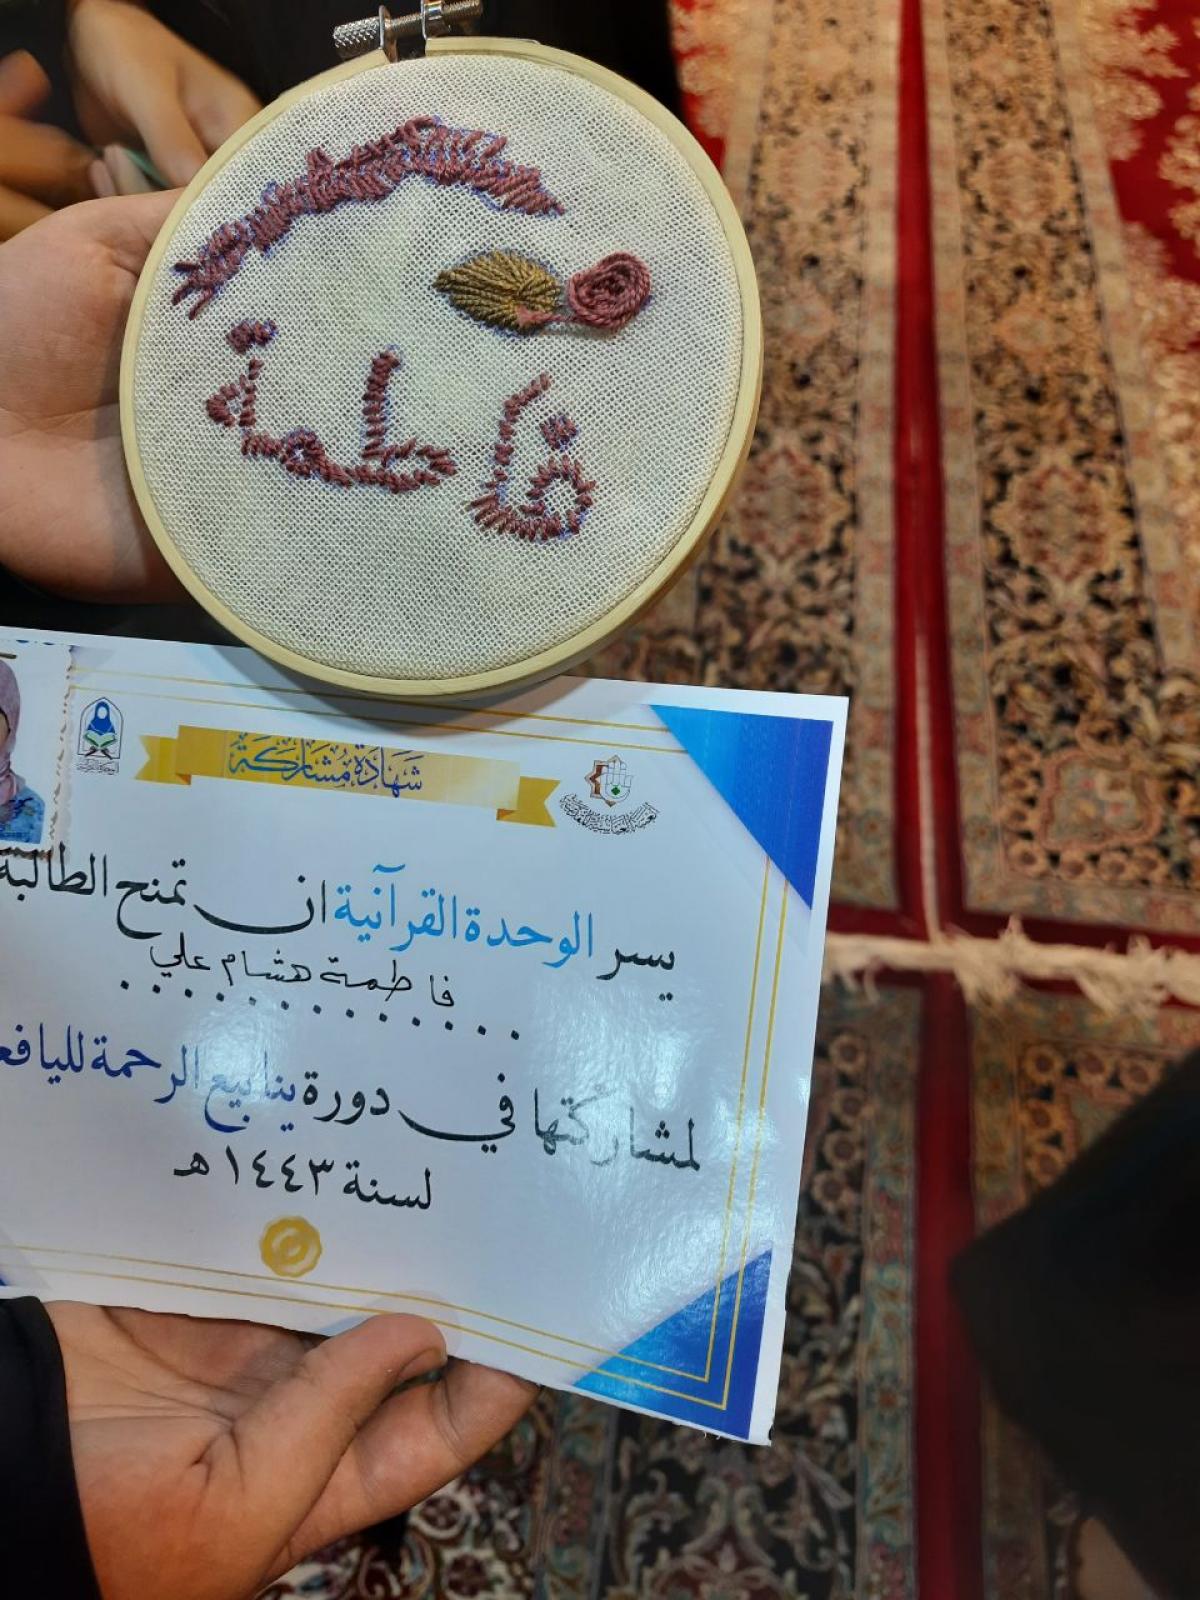 فاطمة
شهادة مشاركة
العتبة العباسية المقدسة
يسر الوحدة القرآنية ان تمنح الطالبة
فاطمة هشام علي
لمشاركتها في دورة ينابيع الرحمة
لسنة ١٤٤٣ هـ